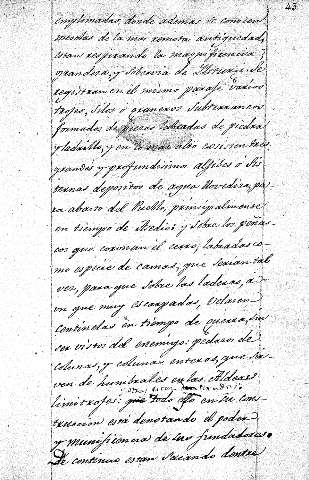 43
emplimadas, donde ademas de cornicon
mentos de la mas remota antiguedad,
estan respirando la magnificencia,
grandesa, y sobervia de
registran en el mismo parage varios
trojes, silos ó graneros subterraneos
formados de piezas labradas de piedra
y ladrillo, y en lo mas alto cosisten tres
grandes y profundisimos algives ó Sis
ternas depositos de agua llovediza, pa
ra abasto del Pueblo, principalmente
en tiempo de y sobre los peñas
cos que coronan el cerro, labradas co
mo especie de camas, que serian tal
vez, para que sobre las laderas, a
un que muy escarpadas, velasen
centinelas en tiempo de guerra, sin
ser vistos del enemigo: pedazos de
colunas, y colunas enteras, que sir
ven de humbrales en las Aldeas
limitrofes: que todo esto en su cons
truccion está denotando el poder
y munificencia de sus fundadores.
De continuo estan sacando dentre